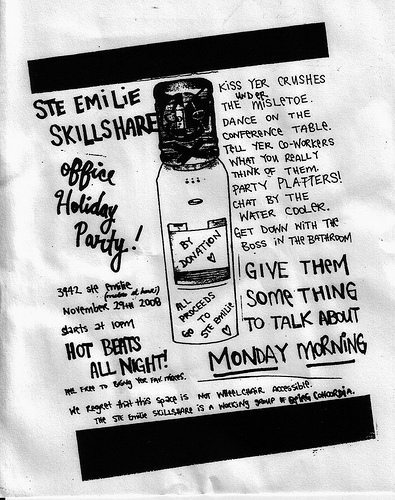 STE EMILIE
SKILLSHARE
office
Holiday
Party!
3942 ste emilie
(metro st henri)
November 29th 2008
starts at 10pm
HOT BEATS
ALL NIGHT!
FEEL FREE TO BRING YOUR FAX MIXES.
BY
DONATION
ALL
PROCEEDS
GO TO
STE EMILIE
KISS YER CRUSHES
UNDER
THE MISLETOE.
DANCE ON THE
CONFERENCE TABLE.
TELL YER CO-WORKERS
WHAT YOU REALLY
THINK OF THEM.
PARTY PLATTERS!
CHAT BY THE
WATER COOLER.
GET DOWN WITH THE
BOSS IN THE BATHROOM
GIVE THEM
SOMETHING
TO TALK ABOUT
MONDAY MORNING
WE REGRET THAT THIS SPACE IS NOT WHEELCHAIR ACCESSIBLE.
THE STE EMILIE SKILLSHARE IS A WORKING GROUP OF QPIRG CONCORDIA.